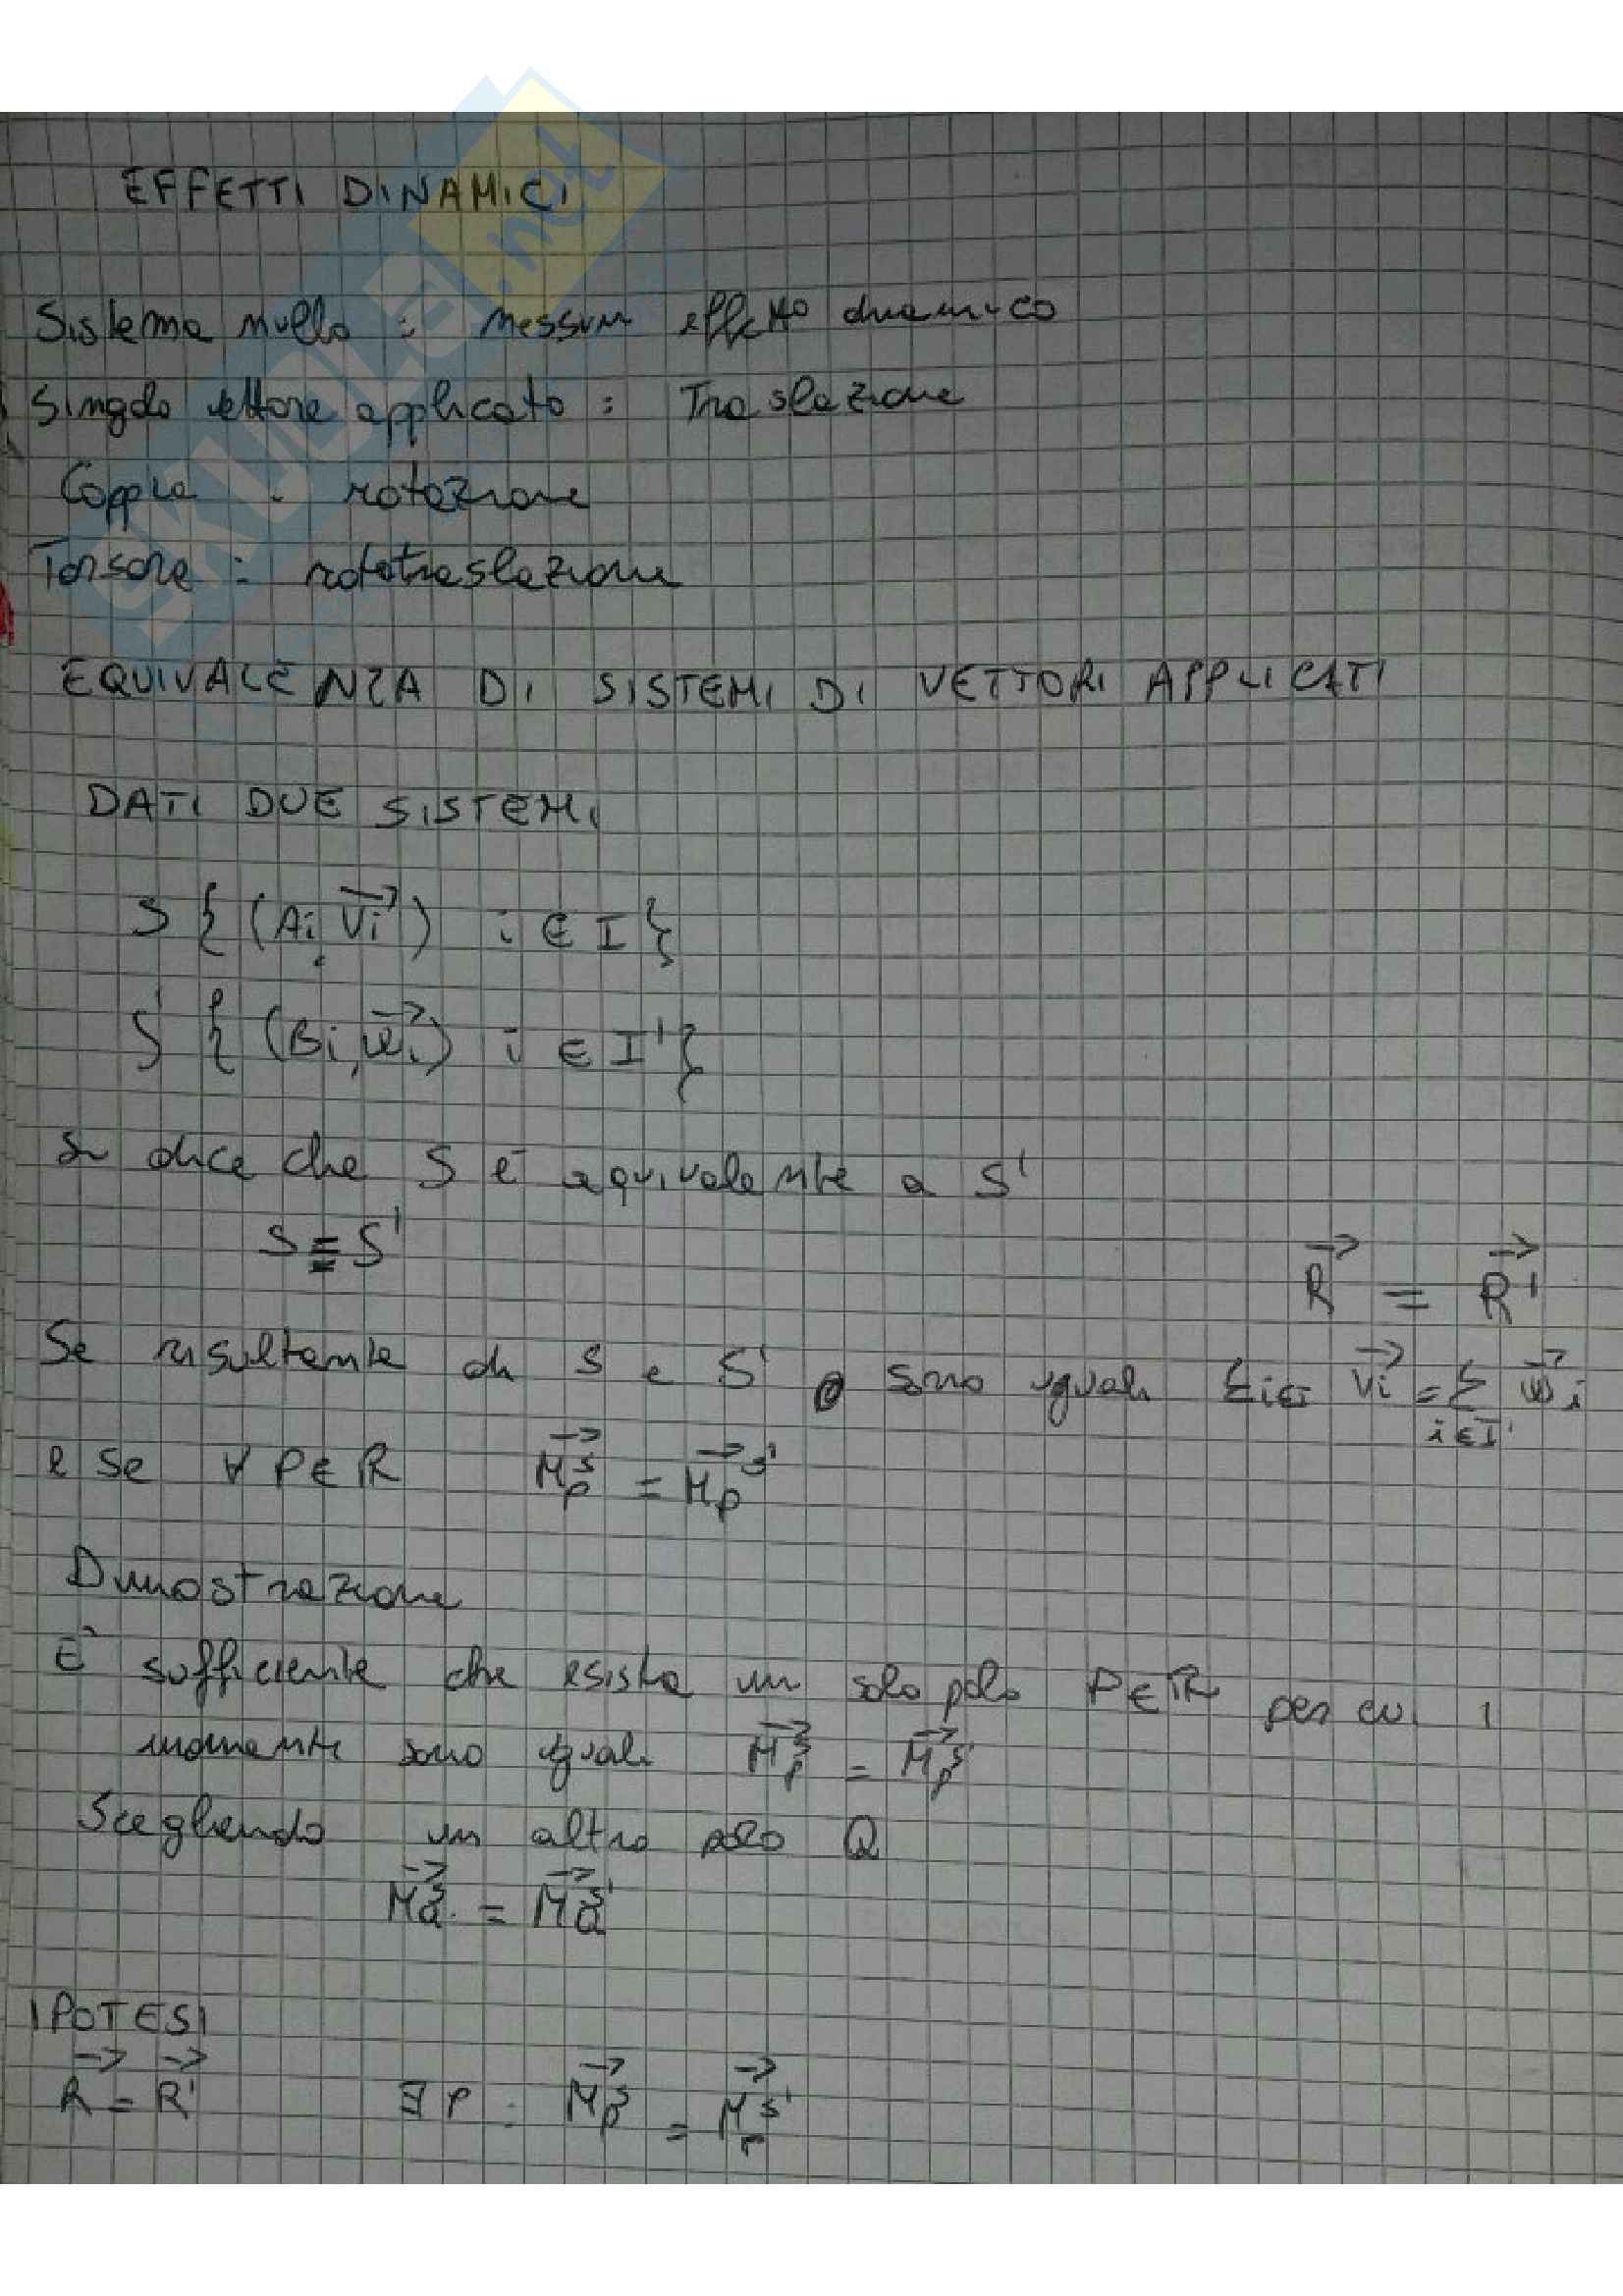 EFFETTI DINAMICI
SKUOLA.net
Sistema nullo : nessun effetto dinamico
Singolo vettore applicato : Traslazione
Coppia : rotazione
Torsore : rototraslazione
EQUIVALENZA DI SISTEMI DI VETTORI APPLICATI
DATI DUE SISTEMI
S { (Ai, \vec{Vi}) i ∈ I }
S' { (Bi, \vec{wi}) i ∈ I' }
Si dice che S è equivalente a S'
S ≡ S'
\vec{R} = \vec{R'}
Se risultante di S e S' sono uguali Σ i∈I \vec{Vi} = Σ i∈I' \vec{w}i
e se ∀ P∈R \vec{M}_P^S = \vec{M}_P^{S'}
Dimostrazione
E' sufficiente che esista un solo polo P∈R per cui i
momenti sono uguali \vec{M}_P^S = \vec{M}_P^{S'}
Scegliendo un altro polo Q
\vec{M}_Q^S = \vec{M}_Q^{S'}
IPOTESI
\vec{R} = \vec{R'} ∃ P : \vec{M}_P^S = \vec{M}_P^{S'}